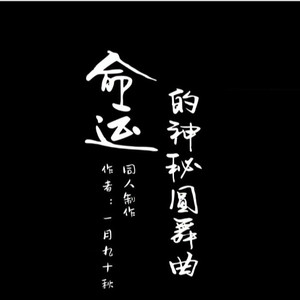 命运
的神秘圆舞曲
同人制作
作者：一月九十秋